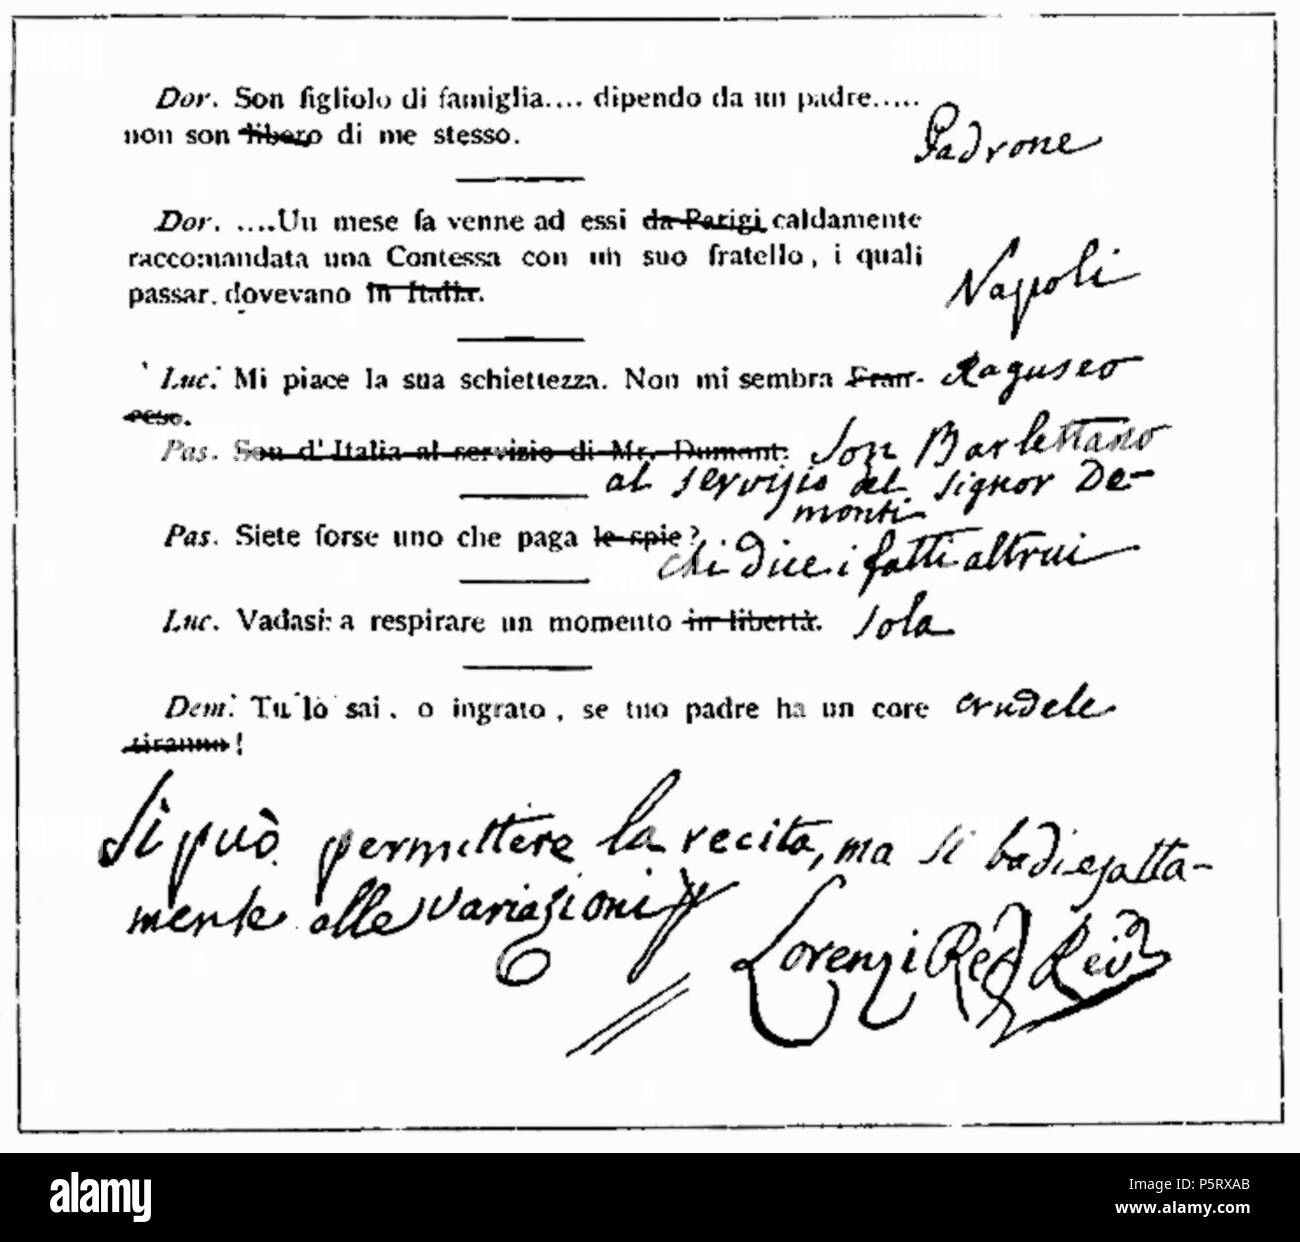 Dor. Son figliolo di famiglia.... dipendo da un padre.....
non son libero di me stesso. Padrone
Dor. ....Un mese fa venne ad essi da Parigi caldamente
raccomandata una Contessa con un suo fratello, i quali Napoli
passar dovevano in Italia.
Luc. Mi piace la sua schiettezza. Non mi sembra Fran- Raguseo
cese.
Pas. Son d'Italia al servizio di Mr. Dumont. Son Barlettano
al servizio del signor De-
monti
Pas. Siete forse uno che paga le spie?
chi dice i fatti altrui
Luc. Vadasi a respirare un momento in libertà. sola
Dem. Tu lo sai, o ingrato, se tuo padre ha un core crudele
tiranno!
Si può permettere la recita, ma si badi esatta-
mente alle variazioni
Lorenzi Reg. Rev.
alamy
Image ID: P5RXAB
www.alamy.com